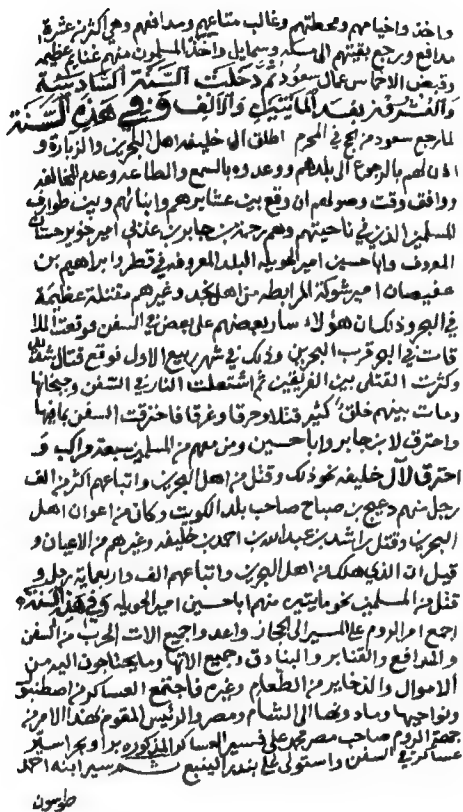 واخذ واخيامهم ومحطتهم وغالب متاعهم ومدافعهم وهي اكثر من عشرة
مدافع ورجع بقيتهم الى مسكه وسمايل واخذ المسلمون منهم غنايم عظيمه
وقبض الاخماس عمال سعود ثم دخلت السنة السادسة
والعشرون بعد المايتين والالف وفي هذه السنة
لما رجع سعود من الحج في المحرم اطلق ال خليفه اهل البحرين والزبارة و
اذن لهم بالرجوع الى بلدهم ووعدوه بالسمع والطاعه وعدم المخالفه
ووافق وقت وصولهم ان وقع بين عشايرهم وابنائهم وبين طوارف
المسلمين الذين في ناحيتهم وهم رحمه بن جابر بن عذبي امير خوير حسان
المعروف وابا حسين امير الحويله البلد المعروفه في قطر وابراهيم بن
عفيصان امير شوكة المرابطه من اهل نجد وغيرهم مقتلة عظيمة
في البحر وذلك ان هؤلاء سار بعضهم على بعض في السفن فوقعت الملا
قات في البحر قرب البحرين وذلك في شهر ربيع الاول فوقع قتال شديد
وكثرت القتلى بين الفريقين ثم اشتعلت النار في السفن وجبخانها
ومات بينهم خلق كثير قتلا وحرقا وغرقا فاحترقت السفن بما فيها
واحترق لابن جابر وابا حسين ومن معهم من المسلمين سبعة مراكب و
احترق لآل خليفه نحو ذلك وقتل من اهل البحرين واتباعهم اكثر من الف
رجل منهم دعيج بن صباح صاحب بلد الكويت وكان من اعوان اهل
البحرين وقتل راشد بن عبدالله بن احمد بن خليفه وغيرهم من الاعيان و
قيل ان الذي هلك من اهل البحرين واتباعهم الف واربعماية رجل و
قتل من المسلمين نحو مايتين منهم ابا حسين امير الحويله وفي هذه السنة
اجمع امر الروم على المسير الى الحجاز واعد واجميع الات الحرب من السفن
والمدافع والقنابر والبنادق وجميع الآتها وما يحتاجون اليه من
الاموال والذخاير من الطعام وغيره فاجتمع العساكر من اصطنبول
ونواحيها وما دونها الى الشام ومصر والرئيس المقوم لهذا الامر من
جهة الروم صاحب مصر محمد علي فسير العساكر المذكوره برا وبحرا سير
عساكر في السفن واستولى على بندر الينبع ثم سير ابنه احمد
طوسون